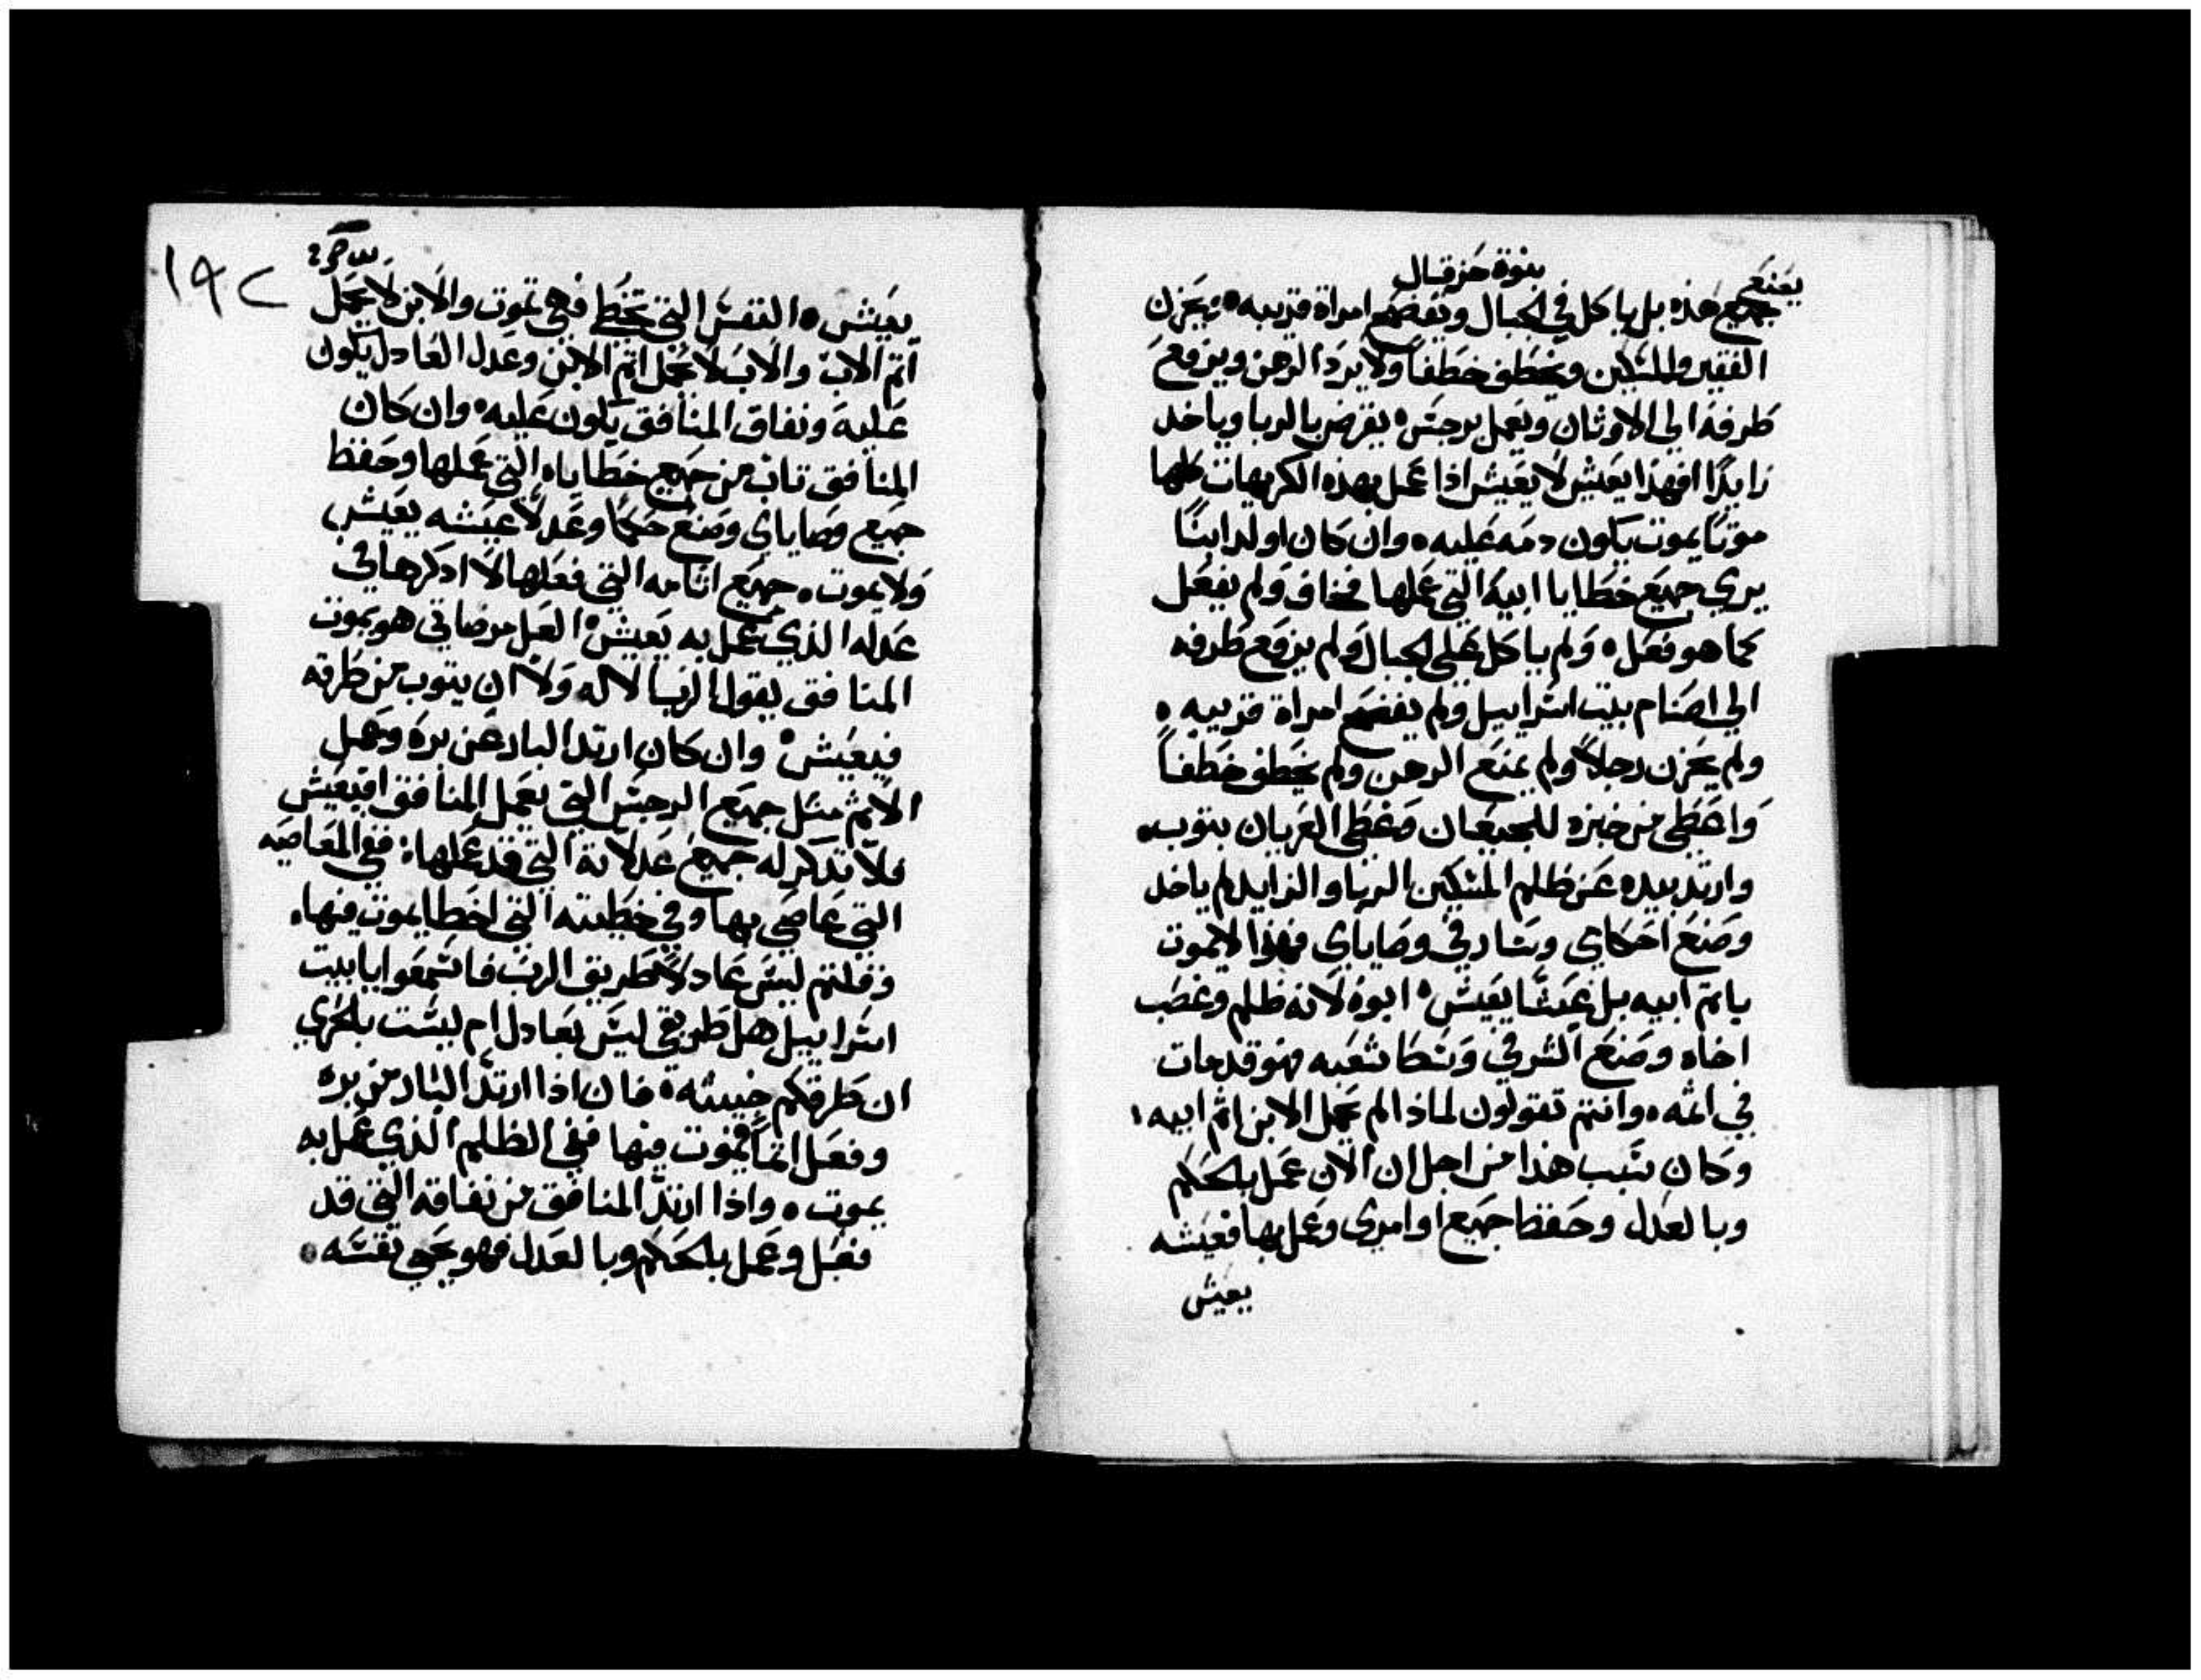 بنوة حزقيال
يصنع
جميع هذه بل ياكل في الجبال ويفضح امراة قريبه ويحزن
الفقير والمسكين ويخطف خطفا ولا يرد الرهن ويرفع
طرفه الي الاوثان ويعمل برجس يقرض بالربا وياخد
زايدا افهذا يعيش لا يعيش اذا عمل بهذه الكريهات كلها
موتا يموت يكون دمه عليه وان كان اولد ابنا
يري جميع خطايا ابيه التي عملها فخاف ولم يفعل
كما هو فعل ولم ياكل علي الجبال ولم يرفع طرفه
الي اصنام بيت اسراييل ولم يفضح امراة قريبه
ولم يحزن رجلا ولم يمنع الرهن ولم يخطف خطفا
واعطي من خبزه للجيعان وغطي العريان بتوبه
وارتد بيده عن ظلم المسكين الربا والزايد لم ياخد
وصنع احكامي وسار في وصاياي فهذا لا يموت
باتم ابيه بل عيشا يعيش ابوه لانه ظلم وغصب
اخاه وصنع الشر في وسط شعبه فهو قد مات
في اثمه وانتم تقولون لماذا لم يحمل الابن اثم ابيه
وكان سبب هذا من اجل ان الابن عمل بالحكم
وبالعدل وحفظ جميع اوامري وعمل بها فعيشه
يعيش
١٩٢
يعيش النفس التي تخطي فهي تموت والابن لا يحمل
اتم الاب والاب لا يحمل اتم الابن وعدل العادل يكون
عليه ونفاق المنافق يكون عليه وان كان
المنافق تاب من جميع خطاياه التي عملها وحفظ
جميع وصاياي وصنع حكما وعدلا عيشه يعيش
ولا يموت جميع اثامه التي فعلها لا ادكرها في
عدله الذي عمل به يعيش العل مرضاتي هو بموت
المنافق يقول الرب الاله ولا ان يتوب من طرقه
فيعيش وان كان ارتد البار عن بره وعمل
الاثم مثل جميع الرجس التي يعمل المنافق افيعيش
فلا تدكر له جميع عدلاته التي قد عملها ففي المعاصيه
التي عاصي بها وفي خطيته التي اخطا يموت فيها
وقلتم ليس عادلا طريق الرب فاسمعوا يا بيت
اسراييل هل طريقي ليس بعادل ام ليست بالحري
ان طرقكم خبيثه فان اذا ارتد البار من بره
وفعل اتما فيموت فيها ففي الظلم الذي عمل به
يموت واذا ارتد المنافق من نفاقه التي قد
فعل وعمل بالحكم وبالعدل فهو يحيي نفسه